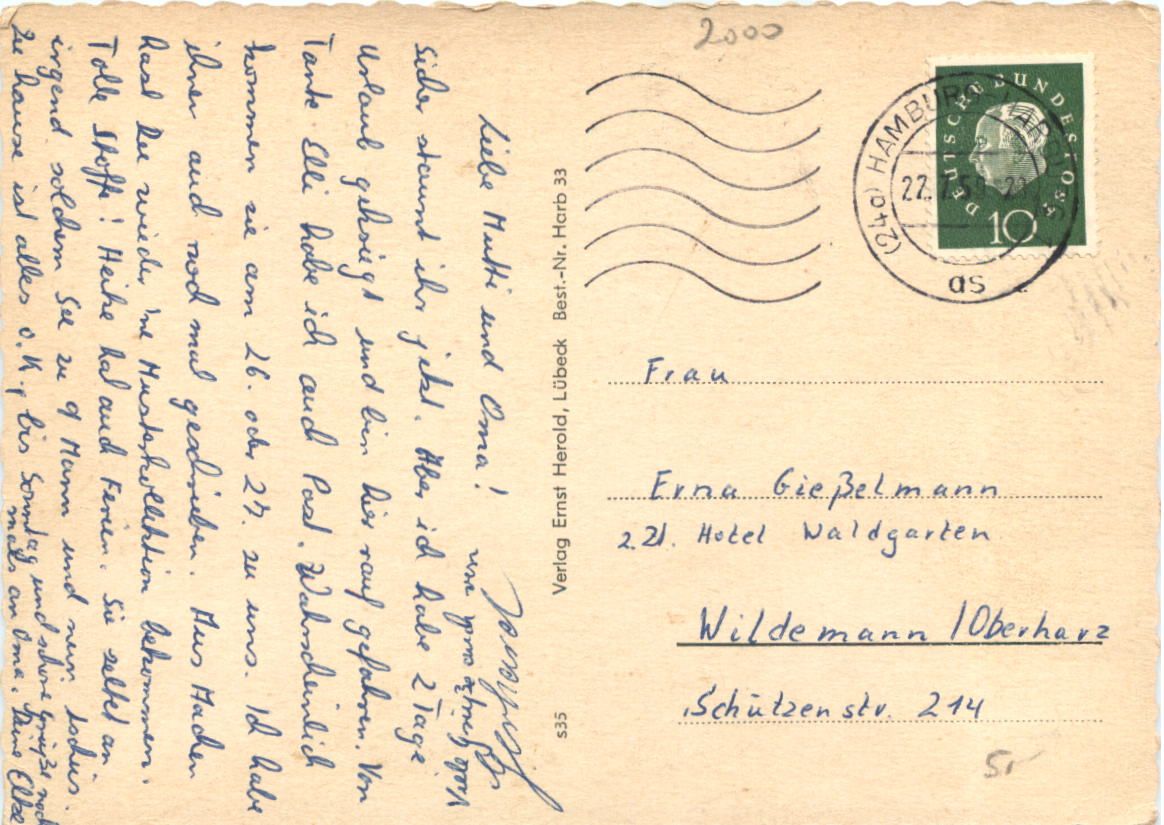 2000
DEUTSCHE BUNDESPOST
10
(24a) HAMBURG
22.7.59
as
Liebe Mutti und Oma!
Sicher staunt ihr jetzt. Aber ich habe 2 Tage
Urlaub gekriegt und bin hier rauf gefahren. Von
Tante Elli habe ich auch Post. Wahrscheinlich
kommen sie am 26. oder 27. zu uns. Ich habe
ihnen auch noch mal geschrieben. Mus Machen
hast Du wieder 'ne Musterkollektion bekommen.
Tolle Stoffe! Heike hat auch Ferien. Sie zeltet an
irgend solchem See zu 9 Mann und nun tschüs.
Zu hause ist alles o.k., bis Sonntag und schöne Grüße noch
mals an Oma. Deine Elke
Verlag Ernst Herold, Lübeck Best.-Nr. Harb 33
s35
Frau
Erna Gießelmann
z.Zt. Hotel Waldgarten
Wildemann /Oberharz
Schützenstr. 214
5,-